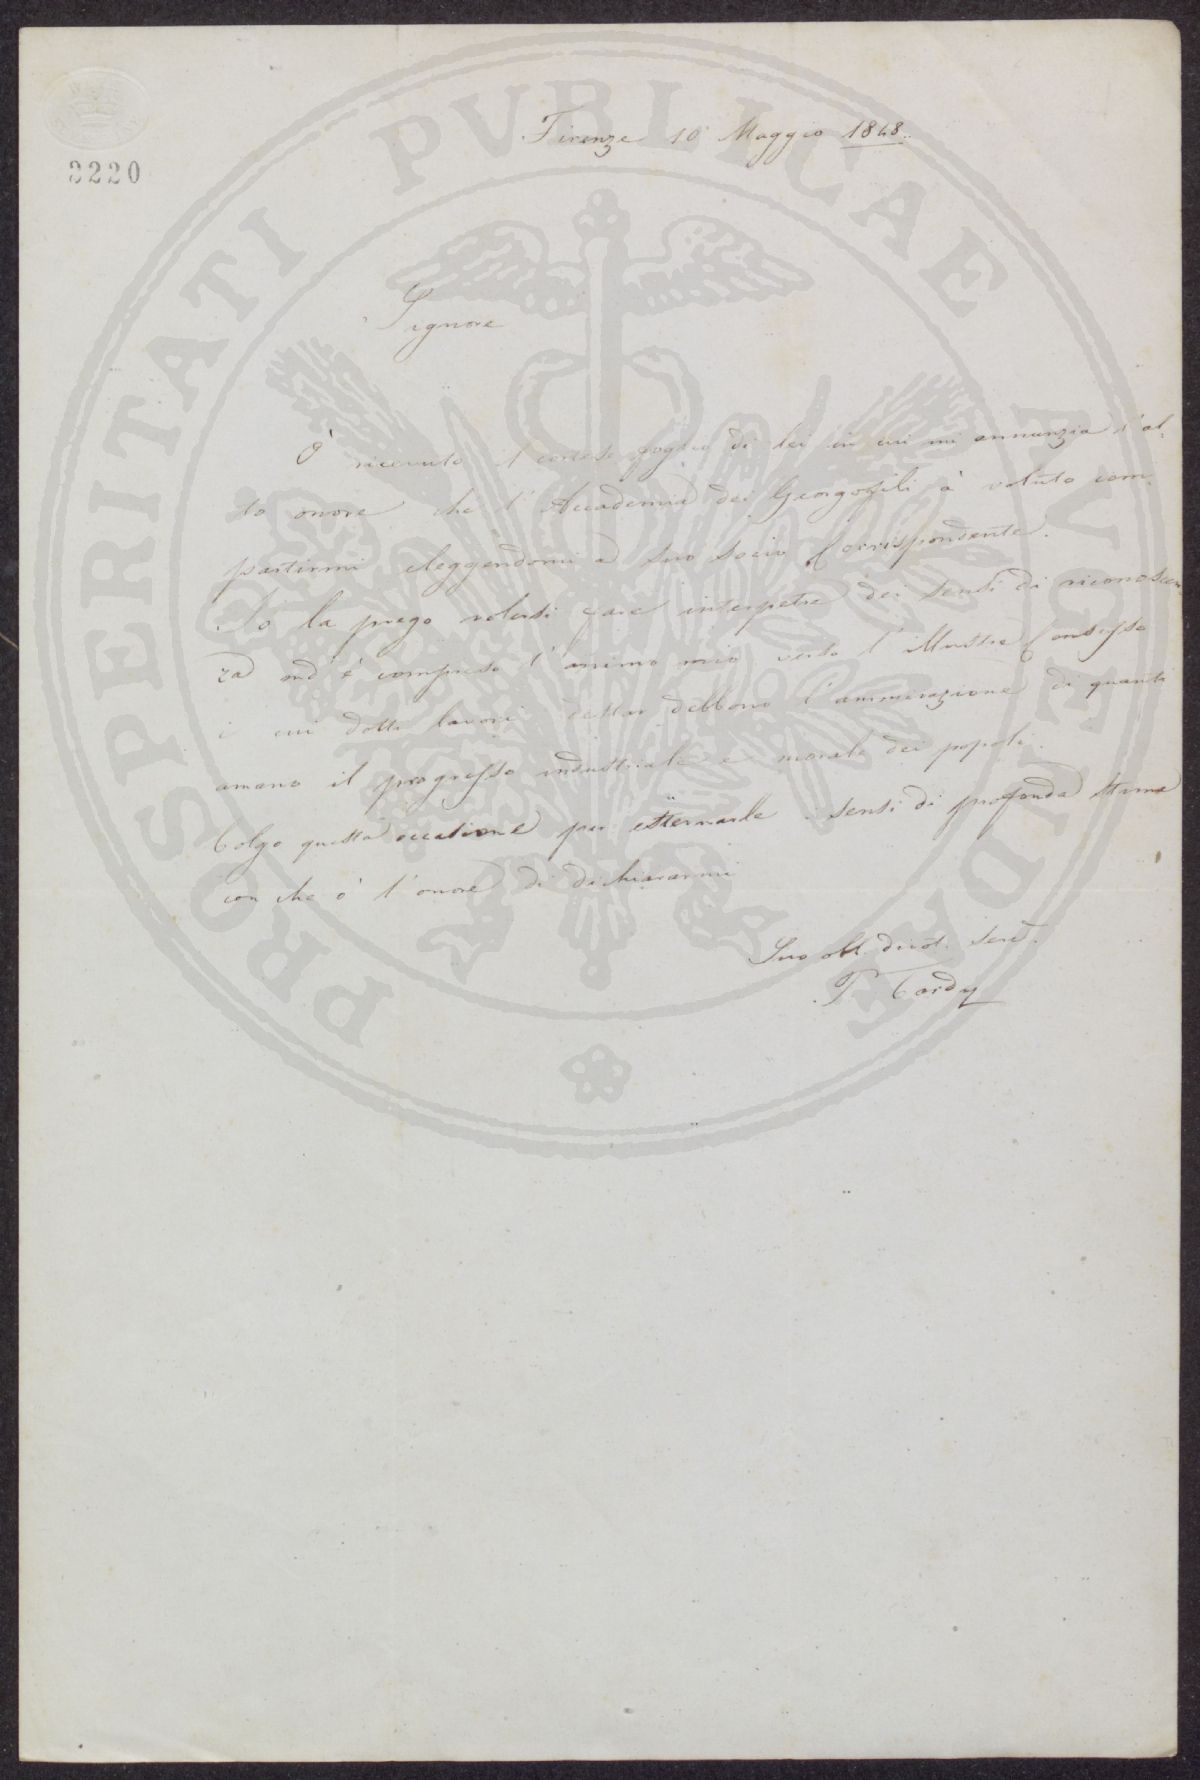 PROSPERITATI PVBLICAE AVGENDAE
2220
Firenze 10 Maggio 1848.
Signore
Ò ricevuto il cortese foglio di lei in cui mi annunzia l'al-
to onore che l'Accademia dei Georgofili à voluto com-
partirmi eleggendomi a suo socio Corrispondente.
Io la prego volersi fare interpetre dei sensi di riconoscen
za ond'è compreso l'animo mio verso l'illustre Consesso
i cui dotti lavori debbono l'ammirazione di quanti
amano il progresso industriale e morale dei popoli.
Colgo questa occasione per esternarle i sensi di profonda stima
con che ò l'onore di dichiararmi
Suo obb. devot. serv.
P. Tardy